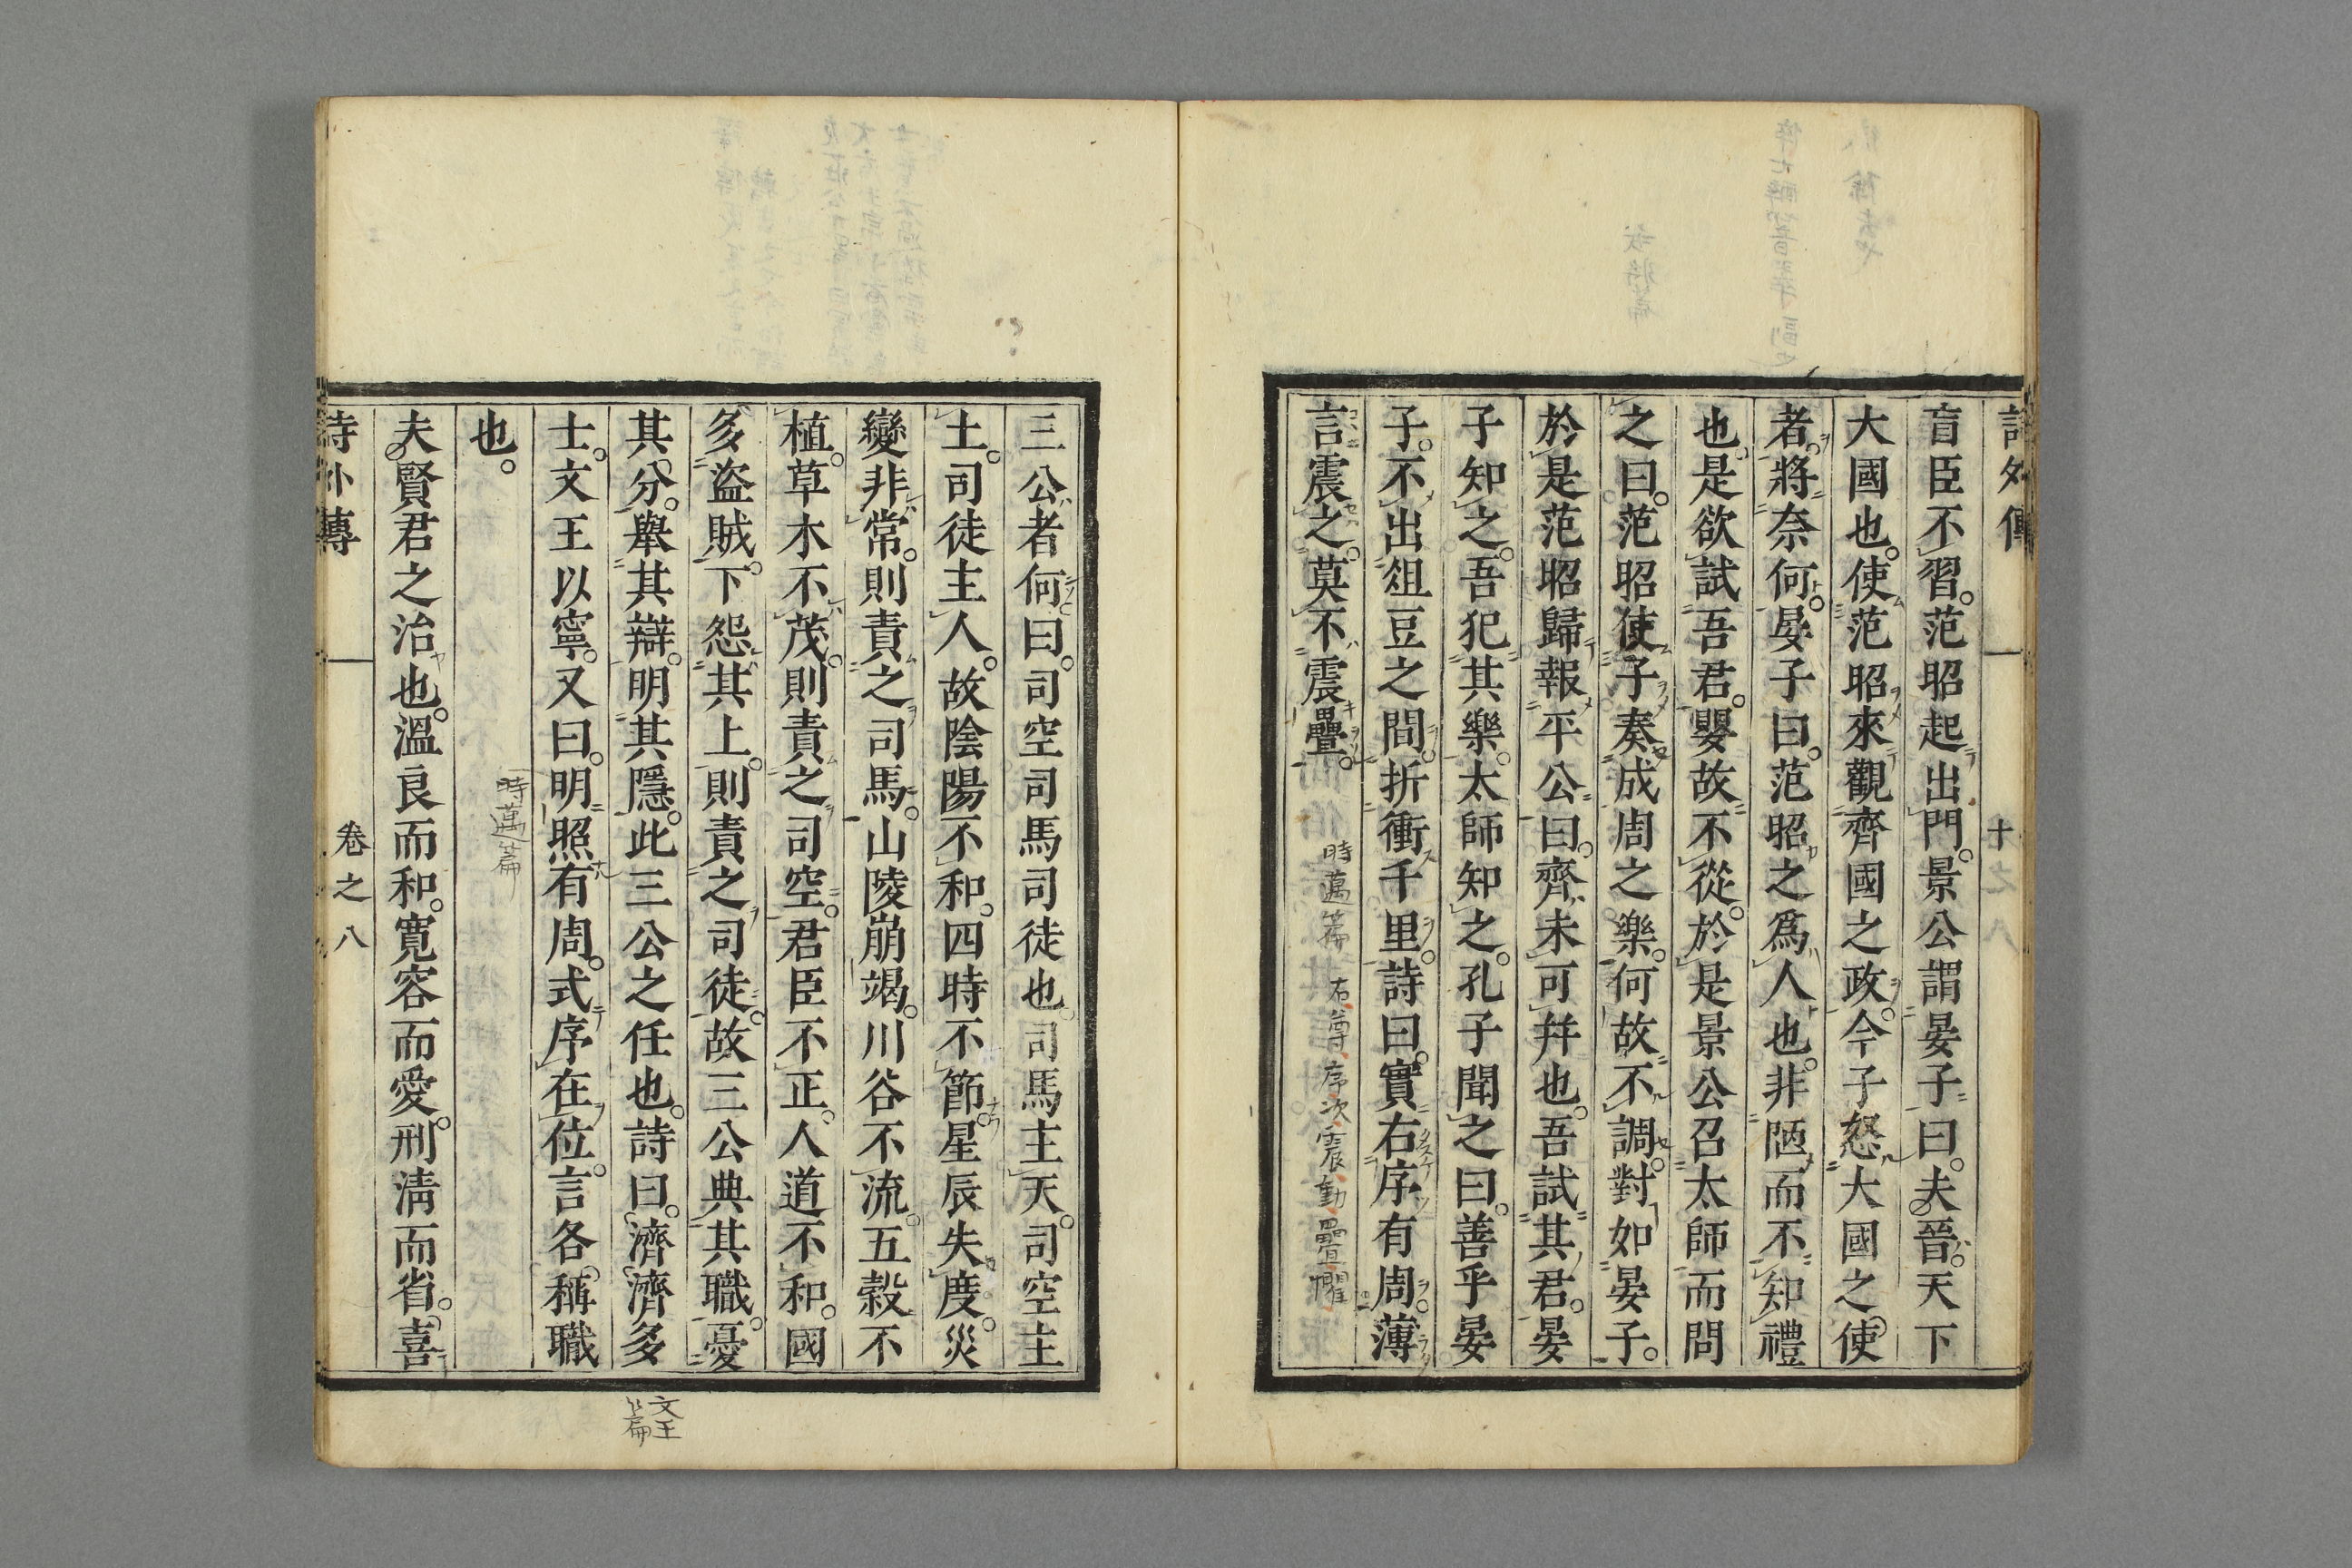 盲臣不習。范昭起出門。景公謂晏子曰。夫晉。天下
大國也。使范昭來觀齊國之政。今子怒大國之使
者。將奈何。晏子曰。范昭之爲人也。非陋而不知禮
也。是欲試吾君。嬰故不從。於是景公召太師而問
之曰。范昭使子奏成周之樂。何故不調。對如晏子。
於是范昭歸報平公曰。齊未可幷也。吾試其君。晏
子知之。吾犯其樂。太師知之。孔子聞之曰。善乎晏
子。不出俎豆之間。折衝千里。詩曰。實右序有周。薄
言震之。莫不震疊。
時邁篇 右尊序次震動疊懼
三公者何。曰。司空司馬司徒也。司馬主天。司空主
土。司徒主人。故陰陽不和。四時不節。星辰失度。災
變非常。則責之司馬。山陵崩竭。川谷不流。五穀不
植。草木不茂。則責之司空。君臣不正。人道不和。國
多盜賊。下怨其上。則責之司徒。故三公典其職。憂
其分。舉其辯。明其隱。此三公之任也。詩曰。濟濟多
文王篇
士。文王以寧。又曰。明照有周。式序在位。言各稱職
也。
時邁篇
夫賢君之治也。溫良而和。寬容而愛。刑清而省。喜
詩外傳 卷之八